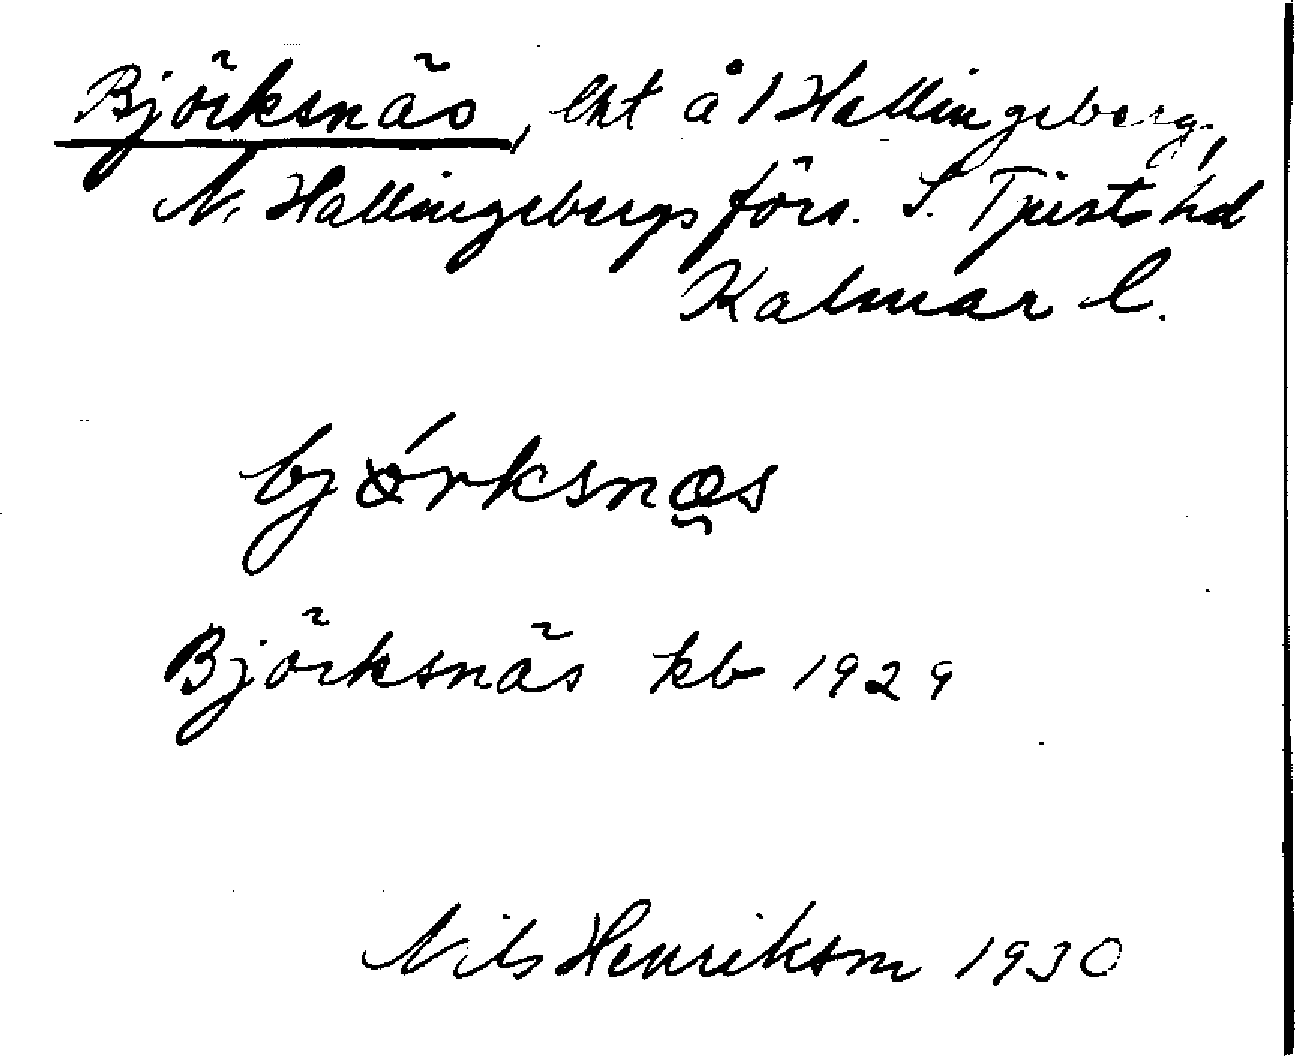 Björksnäs, lht å 1 Hallingeberg,
N. Hallingebergs förs. S. Tjusts hd
Kalmar l.
björksnæs
Björksnäs kb 1929
Nils Henriksson 1930